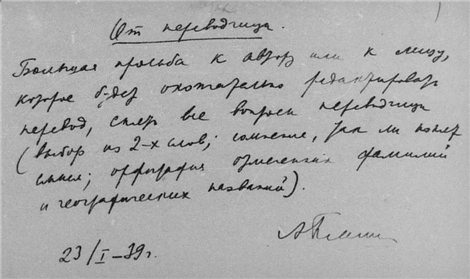 От переводчика.
Большая просьба к автору или к лицу,
которое будет окончательно редактировать
перевод, снять все вопросы переводчика
(выбор из 2-х слов; сомнение, так ли понят
смысл; орфография армянских фамилий
и географических названий).
23/I–39г.